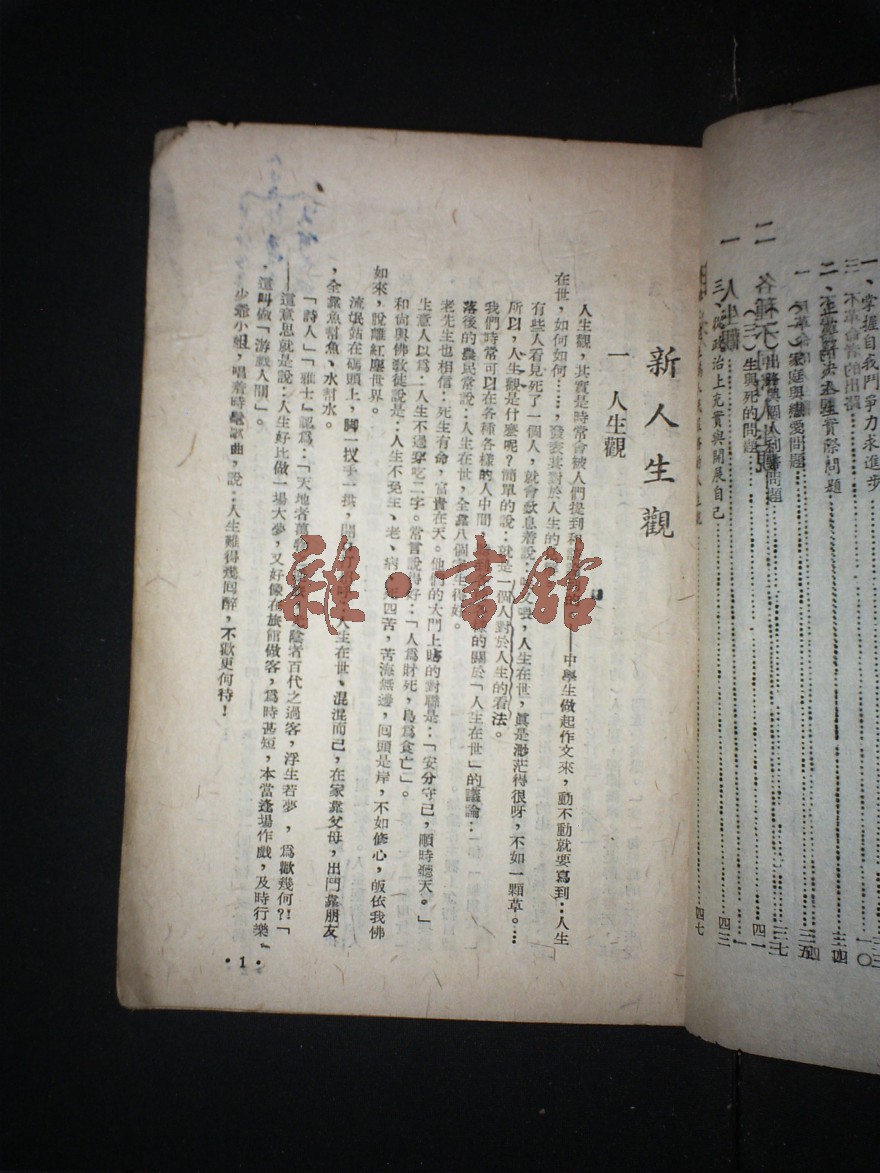 新人生觀
一 人生觀
人生觀，其實是時常會被人們提到和 中學生做起作文來，動不動就要寫到：人生
在世，如何如何……，發表其對於人生的
有些人看見死了一個人，就會歎息着說： 喂，人生在世，眞是渺茫得很呀，不如一顆草。……
所以，人生觀是什麼呢？簡單的說：就是一個人對於人生的看法。
我們時常可以在各種各樣的人中間 的關於「人生在世」的議論：
落後的農民常說：人生在世，全靠八個 生得好。
老先生也相信：死生有命，富貴在天。他們的大門上貼的對聯是：「安分守己，順時聽天。」
生意人以爲：人生不過穿吃二字。常言說得好：「人爲財死，鳥爲食亡」。
和尙與佛敎徒說是：人生不免生、老、病、 四苦，苦海無邊，囘頭是岸，不如修心，皈依我佛
如來，脫離紅塵世界。
流氓站在碼頭上，脚一扠手一拱， 人生在世、混混而已，在家靠父母，出門靠朋友
，全靠魚幫魚、水幫水。
「詩人」「雅士」認爲：「天地者萬物 光陰者百代之過客，浮生若夢，爲歡幾何？！」
——這意思就是說：人生好比做一場大夢，又好像在旅館做客，爲時甚短，本當逢場作戲，及時行樂。
這叫做「游戲人間」。
少爺小姐，唱着時髦歌曲，說：人生難得幾囘醉，不歡更何待！
• 1 •
雜·書館
一、掌握自我鬥爭力求進步
三
一〇
二、 實際問題
三四
家庭與戀愛問題
三五
與個人利 問題
三七
（三）生與死的問題
四一
三、從政治上充實與開展自己
四三
四七